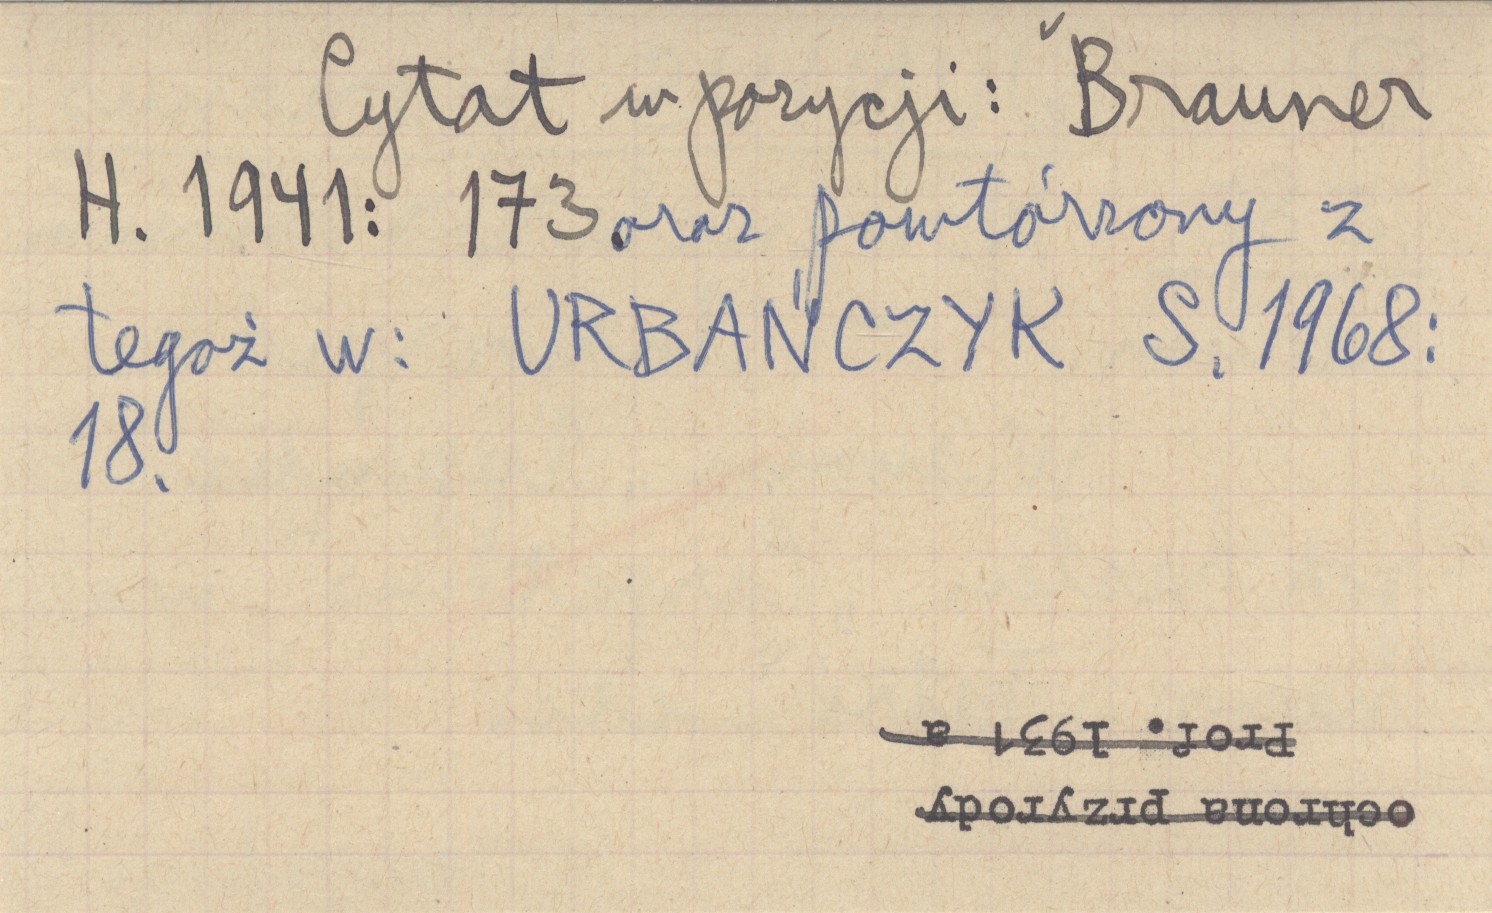 Cytat w pozycji: Brauner
H. 1941: 173. oraz powtórzony z
tegoż w: URBAŃCZYK S. 1968:
18.
ochrona przyrody
Prof. 1931 a